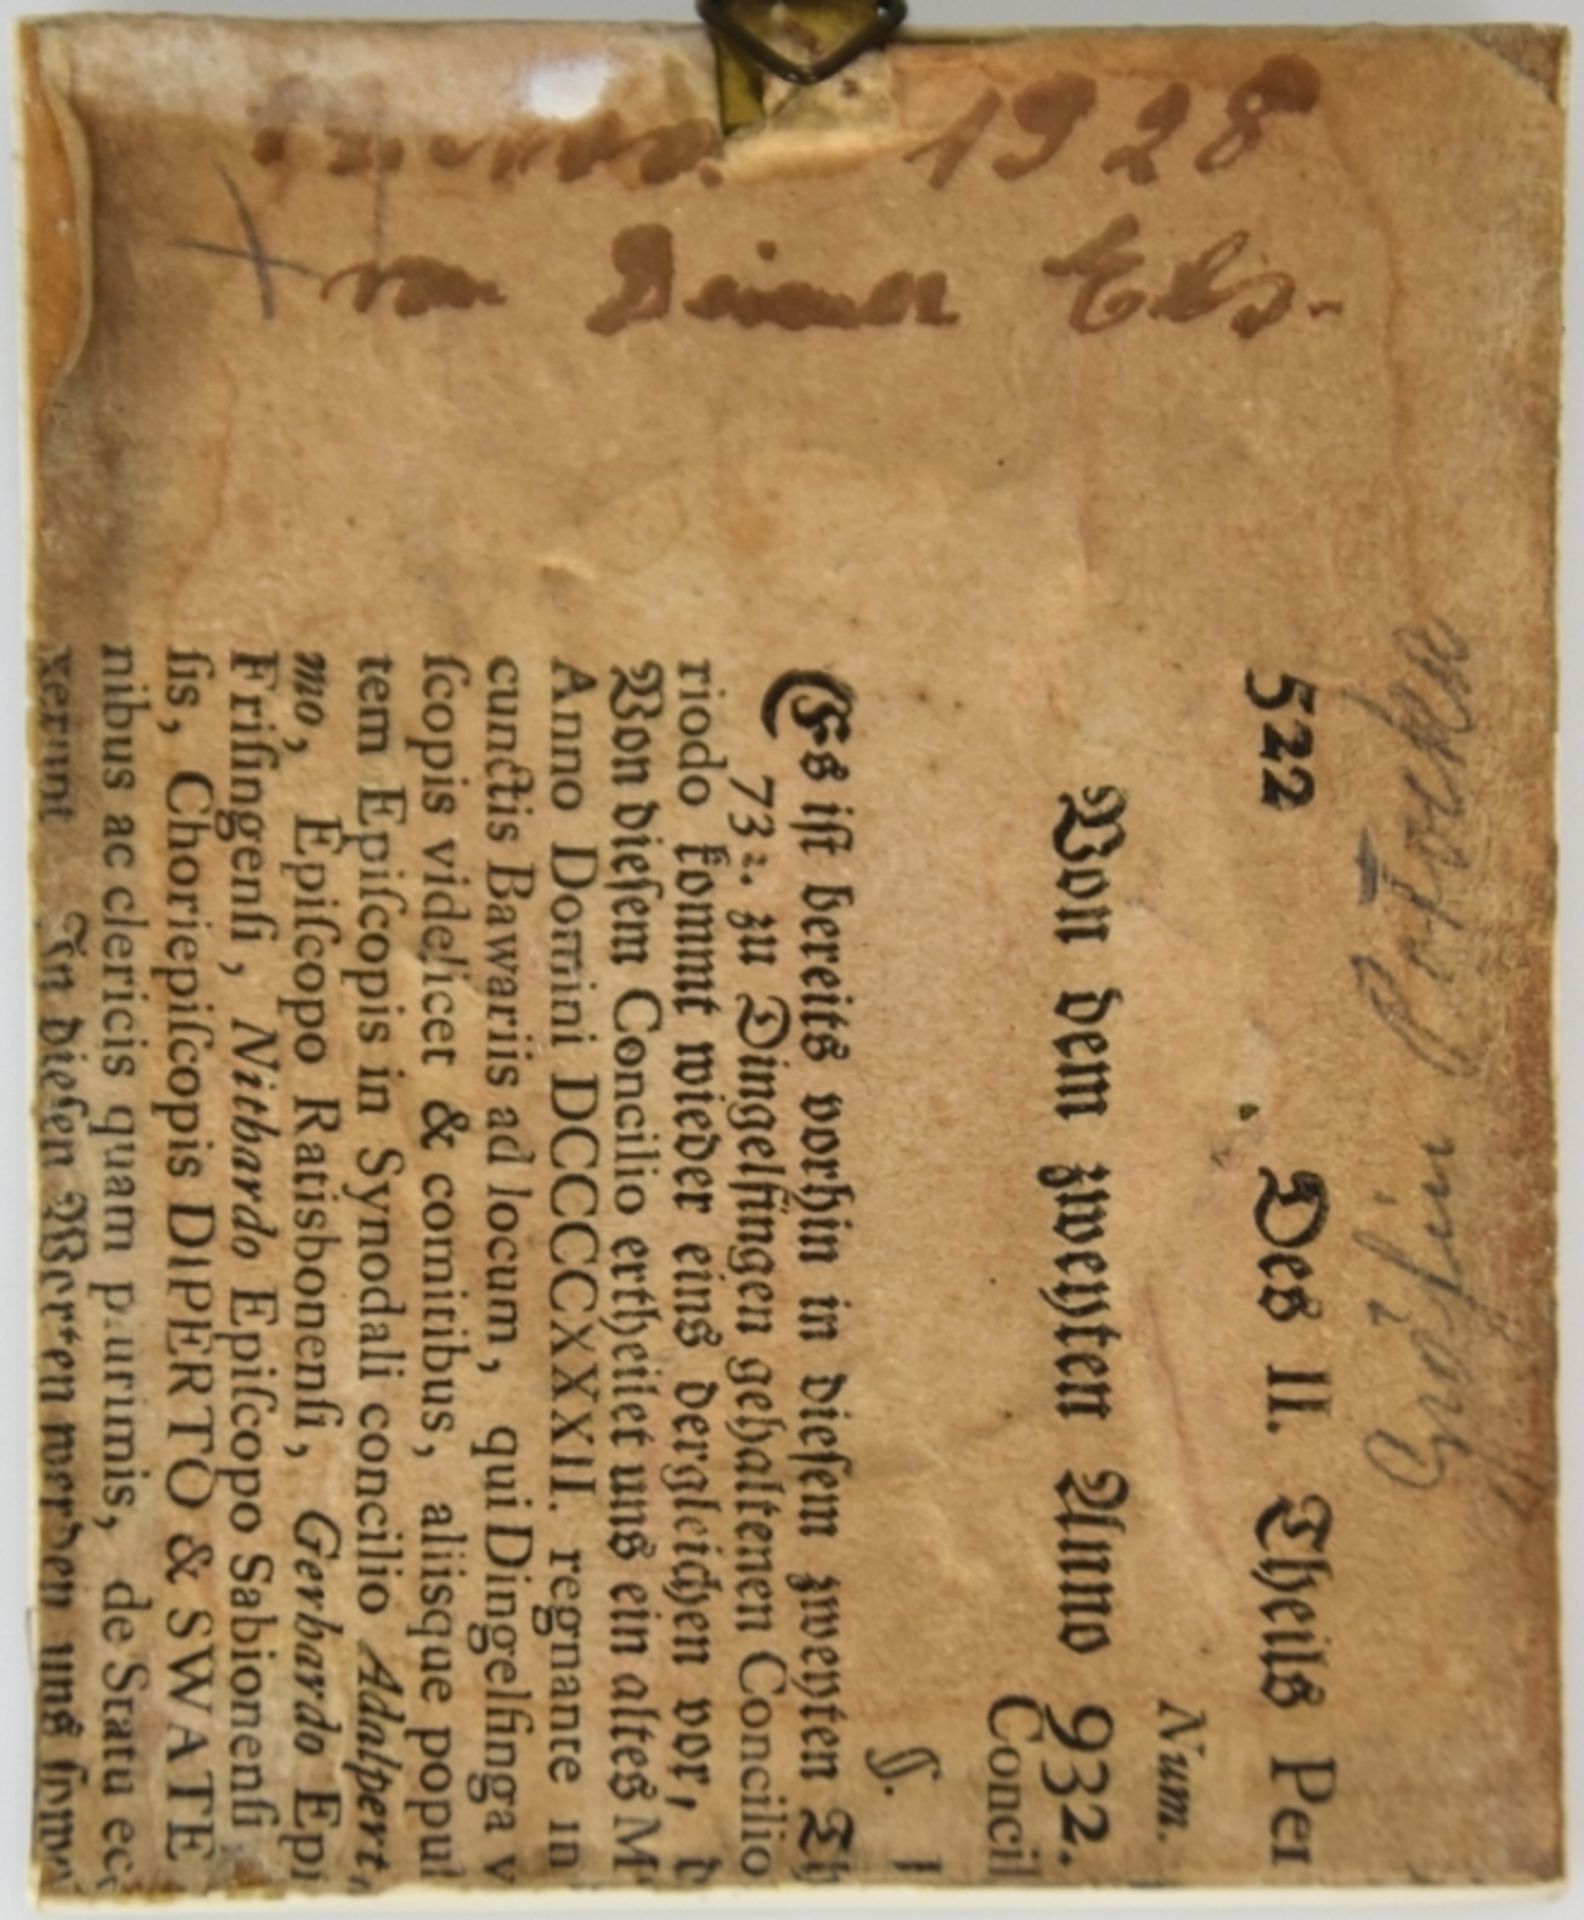 1928
von Deiner Els.
Gräfin Potocka
522 Des II. Theils Per
Num.
Von dem zweyten Anno 932.
Concil
§. I
Es ist bereits vorhin in diesem zweyten Th
73 . zu Dingelfingen gehaltenen Concilio
riodo kommt wieder eins dergleichen vor, d
Von diesem Concilio ertheilet uns ein altes M
Anno Domini DCCCCXXXII. regnante in
cunctis Bawariis ad locum, qui Dingelfinga v
ſcopis videlicet & comitibus, aliisque popul
tem Epiſcopis in Synodali concilio Adalpert,
mo, Epiſcopo Ratisbonenſi, Gerhardo Epi
Friſingenſi, Nithardo Epiſcopo Sabionenſi
ſis, Choriepiſcopis DIPERTO & SWATE
nibus ac clericis quam plurimis, de Statu ecc
xerunt In diesen Worten werden uns